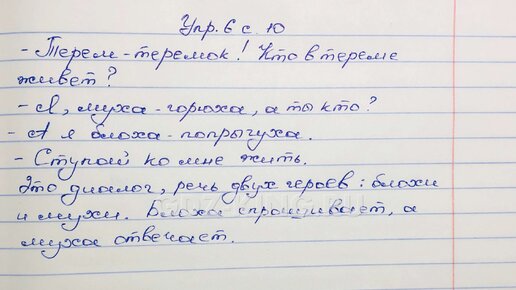 Упр. 6 с. 10
- Терем-теремок! Кто в тереме
живет?
- Я, муха-горюха, а ты кто?
- А я блоха-попрыгуха.
- Ступай ко мне жить.
Это диалог, речь двух героев: блохи
и мухи. Блоха спрашивает, а
муха отвечает.